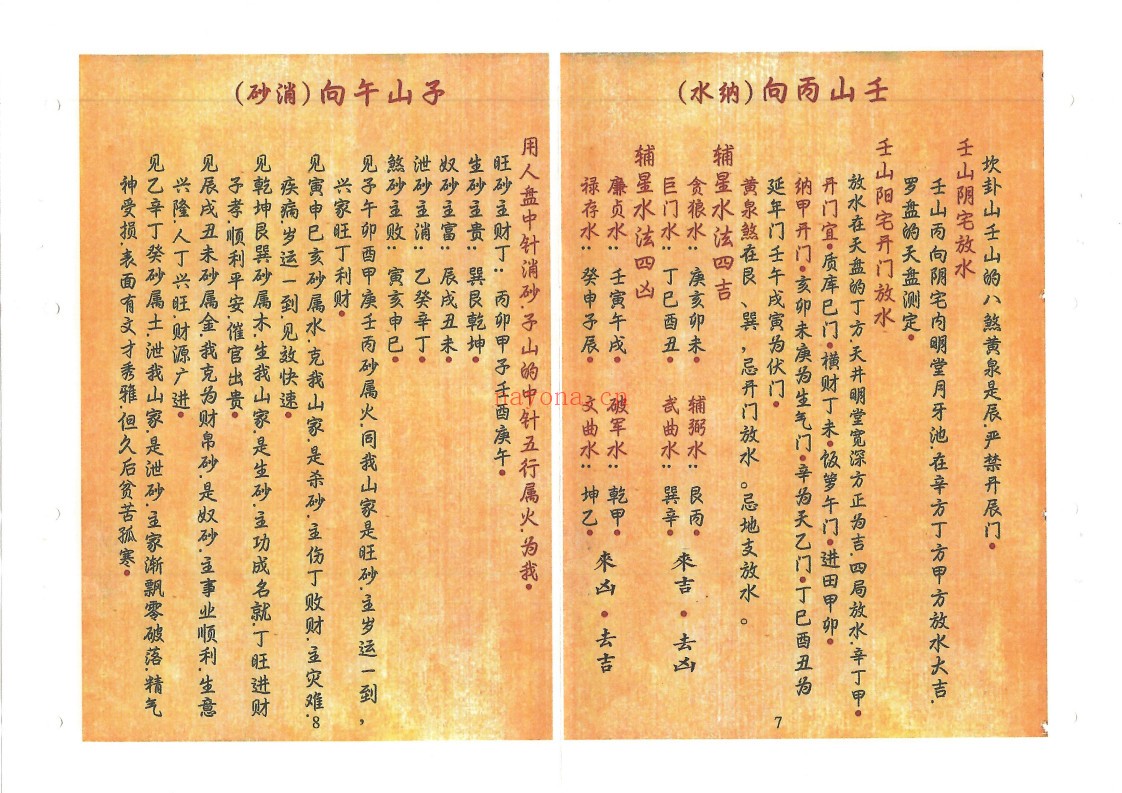 壬山丙向(纳水)
坎卦山壬山的八煞黄泉是辰.严禁开辰门.
壬山阴宅放水
壬山丙向阴宅内明堂月牙池.在辛方丁方甲方放水大吉.
罗盘的天盘测定.
壬山阳宅开门放水
放水在天盘的丁方.天井明堂宽深方正为吉.四局放水.辛丁甲.
开门宜.质库巳门.横财丁未.饭箩午门.进田甲卯.
纳甲开门.亥卯未庚为生气门.辛为天乙门.丁巳酉丑为
延年门壬午戌寅为伏门.
黄泉煞在艮、巽,忌开门放水。忌地支放水。
辅星水法四吉
贪狼水:庚亥卯未. 辅弼水:艮丙.
巨门水:丁巳酉丑 武曲水:巽辛.
來吉.去凶
辅星水法四凶
廉贞水:壬寅午戌. 破军水:乾甲.
禄存水:癸申子辰. 文曲水:坤乙.
來凶.去吉
7
子山午向(消砂)
用人盘中针消砂.子山的中针五行属火.为我.
旺砂主财丁:丙卯甲子壬酉庚午.
生砂主贵:巽艮乾坤.
奴砂主富:辰戌丑未.
泄砂主消 乙癸辛丁.
煞砂主败:寅亥申巳.
见子午卯酉甲庚壬丙砂属火.同我山家是旺砂.主岁运一到,
兴家旺丁利财.
见寅申巳亥砂属水.克我山家.是杀砂.主伤丁败财.主灾难.
疾病.岁运一到.见效快速.
见乾坤艮巽砂属木.生我山家.是生砂.主功成名就.丁旺进财
子孝顺利平安.催官出贵.
见辰戌丑未砂属金.我克为财帛砂.是奴砂.主事业顺利.生意
兴隆.人丁兴旺.财源广进.
见乙辛丁癸砂属土.泄我山家.是泄砂.主家渐飘零破落.精气
神受损.表面有文才秀雅.但久后贫苦孤寒.
8
nayona.cn